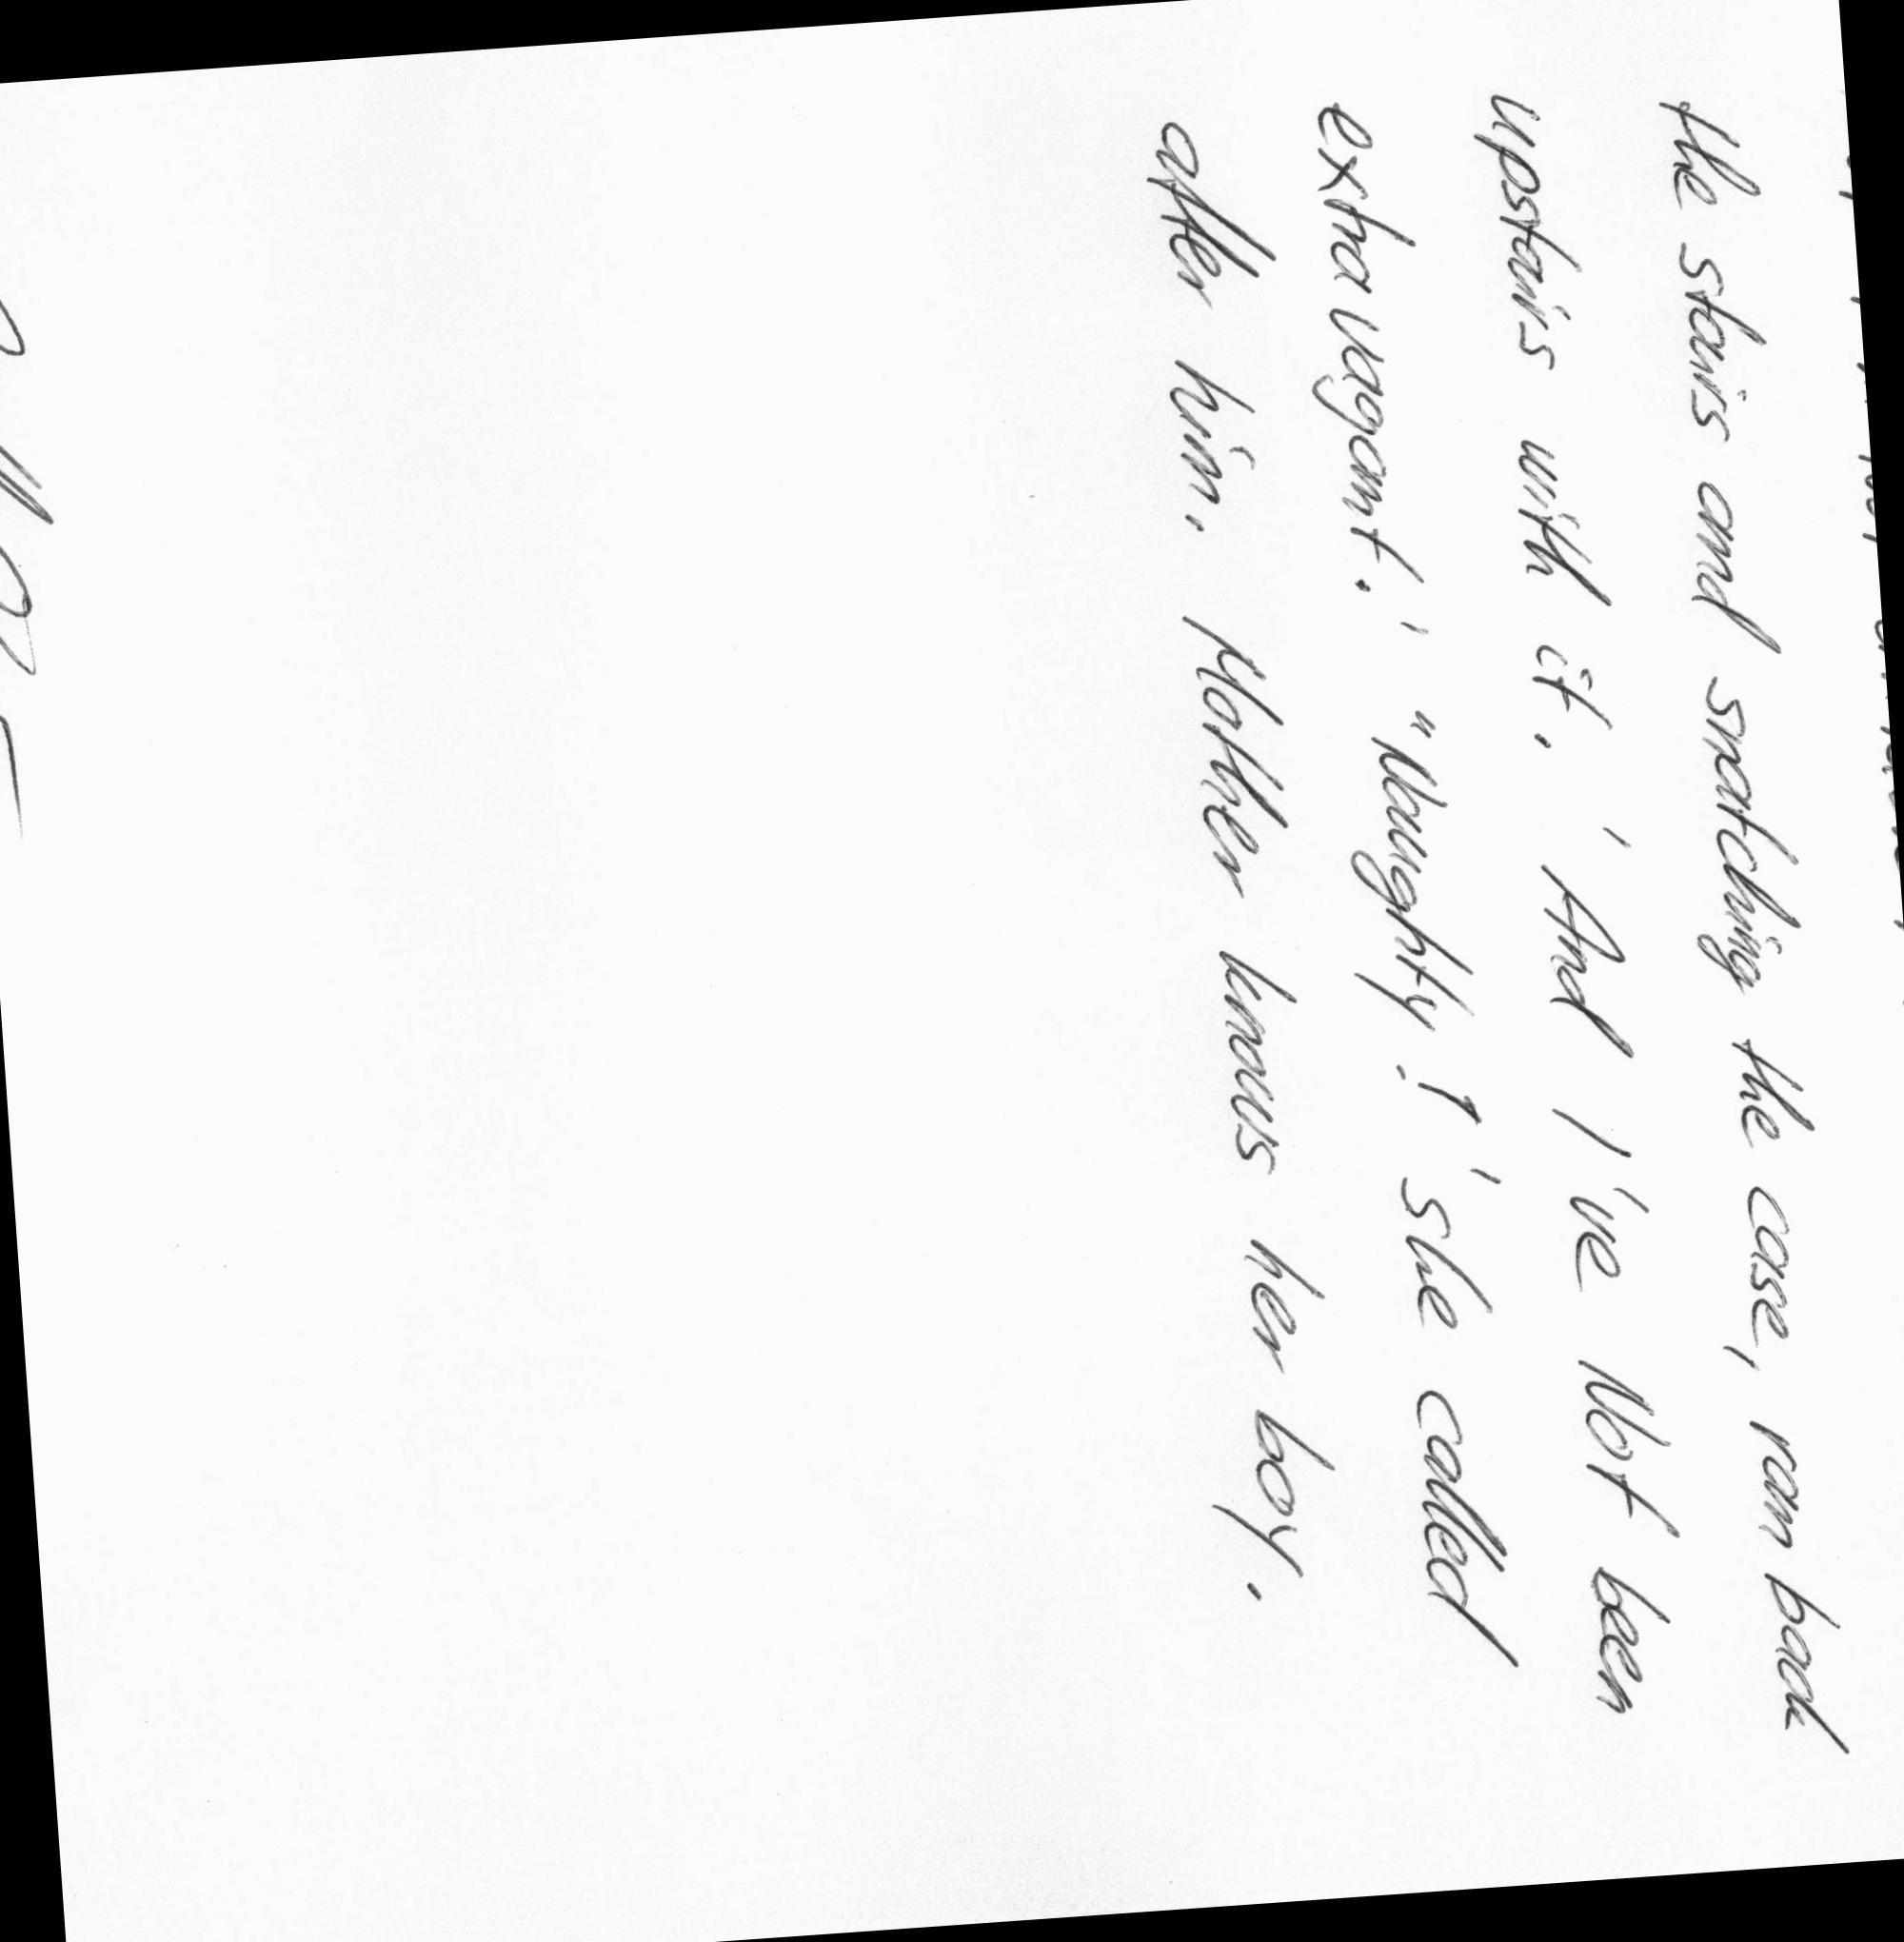 the stairs and snatching the case, ran back
upstairs with it. ' And I 've Not been
extravagant. ' "Naughty! ' she called
after him. Mother knows her boy.